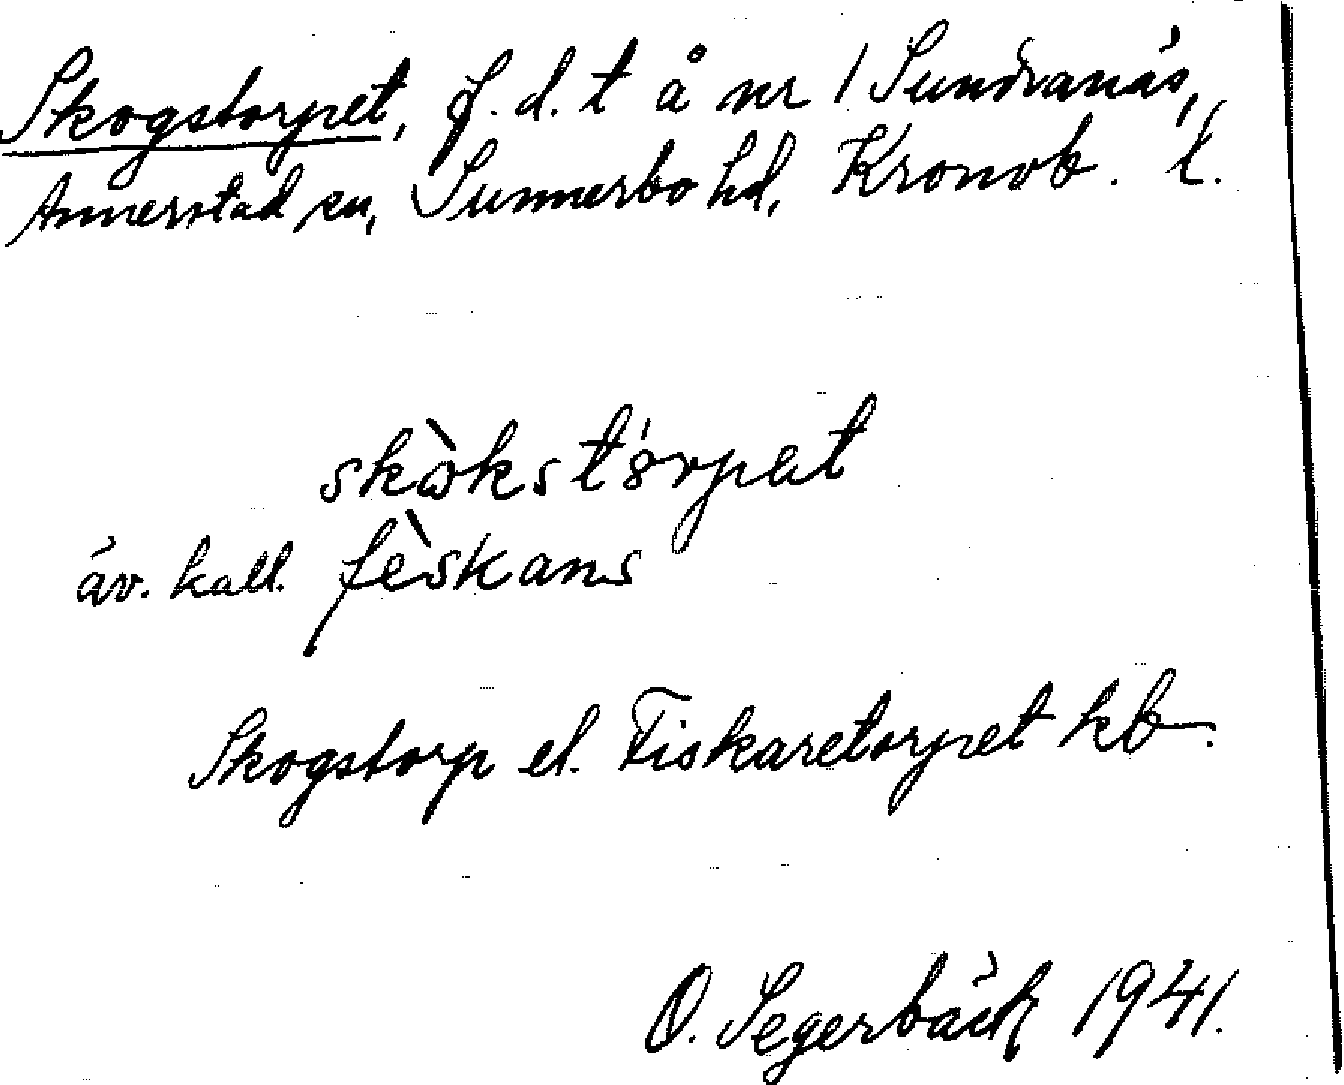 Skogstorpet, f. d. t å nr 1 Sundranäs,
Annerstad sn, Sunnerbo hd, Kronob. l.
skɷ̀kstʹɵrpət
äv. kall. fèskans
Skogstorp el. Fiskaretorpet kb.
O. Segerbäck 1941.